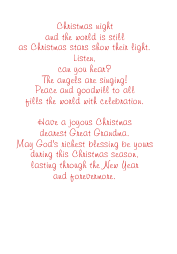 Christmas night
and the world is still
as Christmas stars show their light.
Listen,
can you hear?
The angels are singing!
Peace and goodwill to all
fills the world with celebration.

Have a joyous Christmas
dearest Great Grandma.
May God's richest blessing be yours
during this Christmas season,
lasting through the New Year
and forevermore.